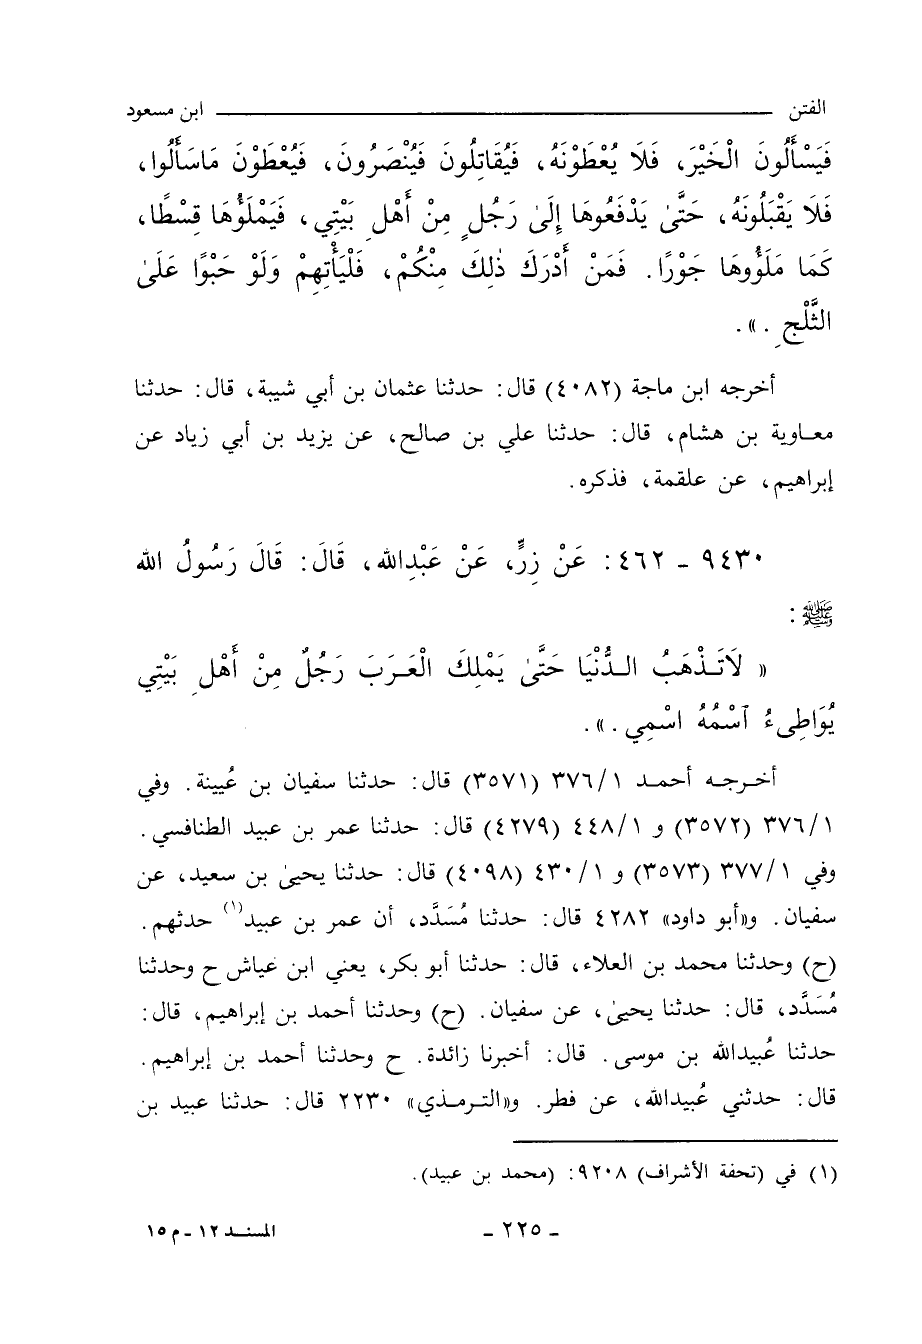 الفتن ــــــ ابن مسعود
فَيَسْأَلُونَ الْخَيْرَ، فَلَا يُعْطَوْنَهُ، فَيُقَاتِلُونَ فَيُنْصَرُونَ، فَيُعْطَوْنَ مَاسَأَلُوا،
فَلَا يَقْبَلُونَهُ، حَتَّىٰ يَدْفَعُوهَا إِلَىٰ رَجُلٍ مِنْ أَهْلِ بَيْتِي، فَيَمْلَؤُهَا قِسْطًا،
كَمَا مَلَؤُوهَا جَوْرًا. فَمَنْ أَدْرَكَ ذٰلِكَ مِنْكُمْ، فَلْيَأْتِهِمْ وَلَوْ حَبْوًا عَلَىٰ
الثَّلْجِ .».
أخرجه ابن ماجة (٤٠٨٢) قال: حدثنا عثمان بن أبي شيبة، قال: حدثنا
معاوية بن هشام، قال: حدثنا علي بن صالح، عن يزيد بن أبي زياد عن
إبراهيم، عن علقمة، فذكره.
٩٤٣٠ ـ ٤٦٢: عَنْ زِرٍّ، عَنْ عَبْدِالله، قَالَ: قَالَ رَسُولُ الله
ﷺ:
« لَاتَذْهَبُ الدُّنْيَا حَتَّىٰ يَمْلِكَ الْعَرَبَ رَجُلٌ مِنْ أَهْلِ بَيْتِي
يُوَاطِىءُ ٱسْمُهُ اسْمِي .».
أخرجه أحمد ٣٧٦/١ (٣٥٧١) قال: حدثنا سفيان بن عُيينة. وفي
٣٧٦/١ (٣٥٧٢) و ٤٤٨/١ (٤٢٧٩) قال: حدثنا عمر بن عبيد الطنافسي.
وفي ٣٧٧/١ (٣٥٧٣) و ٤٣٠/١ (٤٠٩٨) قال: حدثنا يحيىٰ بن سعيد، عن
سفيان. و«أبو داود» ٤٢٨٢ قال: حدثنا مُسَدَّد، أن عمر بن عبيد(١) حدثهم.
(ح) وحدثنا محمد بن العلاء، قال: حدثنا أبو بكر، يعني ابن عياش ح وحدثنا
مُسَدَّد، قال: حدثنا يحيىٰ، عن سفيان. (ح) وحدثنا أحمد بن إبراهيم، قال:
حدثنا عُبيدالله بن موسى. قال: أخبرنا زائدة. ح وحدثنا أحمد بن إبراهيم.
قال: حدثني عُبيدالله، عن فطر. و«الترمذي» ٢٢٣٠ قال: حدثنا عبيد بن
(١) في (تحفة الأشراف) ٩٢٠٨: (محمد بن عبيد).
ـ ٢٢٥ ـ
المسند ١٢ ـ م ١٥